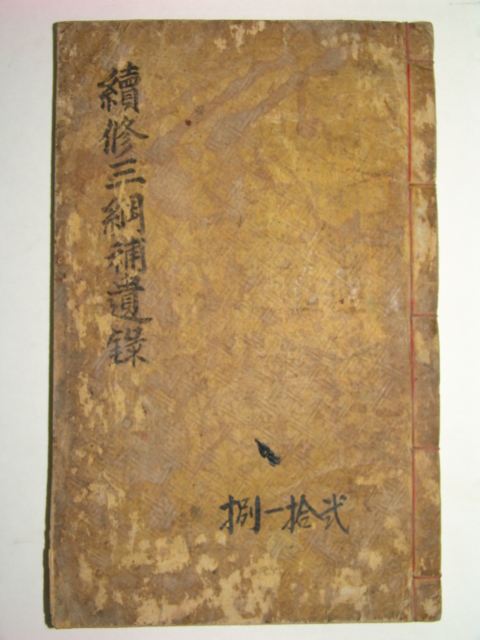 續修三綱補遺錄
捌一拾弍